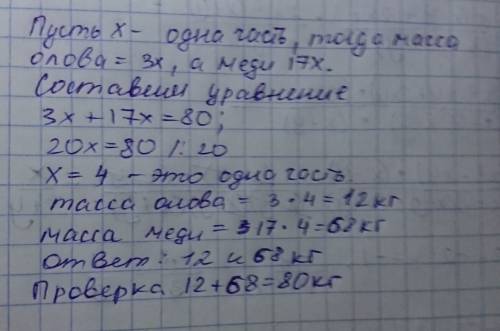 Пусть x - одна часть, тогда масса
олова = 3x, а меди 17x.
Составим уравнение
3x + 17x = 80;
20x = 80 /: 20
x = 4 - это одна часть.
масса олова = 3 · 4 = 12 кг
масса меди = 17 · 4 = 68 кг
ответ: 12 и 68 кг
Проверка 12 + 68 = 80 кг